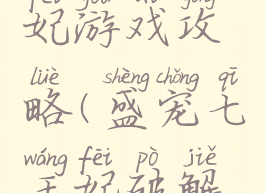 妃游戏攻
lüè shèng chǒng qī
略(盛宠七
wáng fēi pò jiě
王妃破解